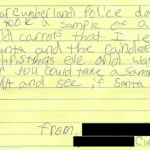 ar Cumberland Police da
took a sample of a
nd carrots that I le
anta and the raindee
hristmas eve and was
f you could take a sam
NA and see if Santa
from,